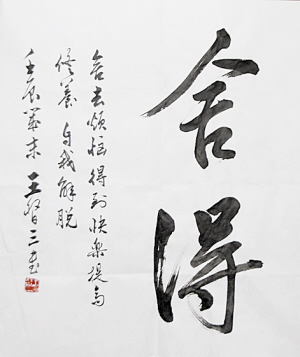 舍得
舍去烦恼得到快乐提高
修养自我解脱
壬辰岁末王智三书